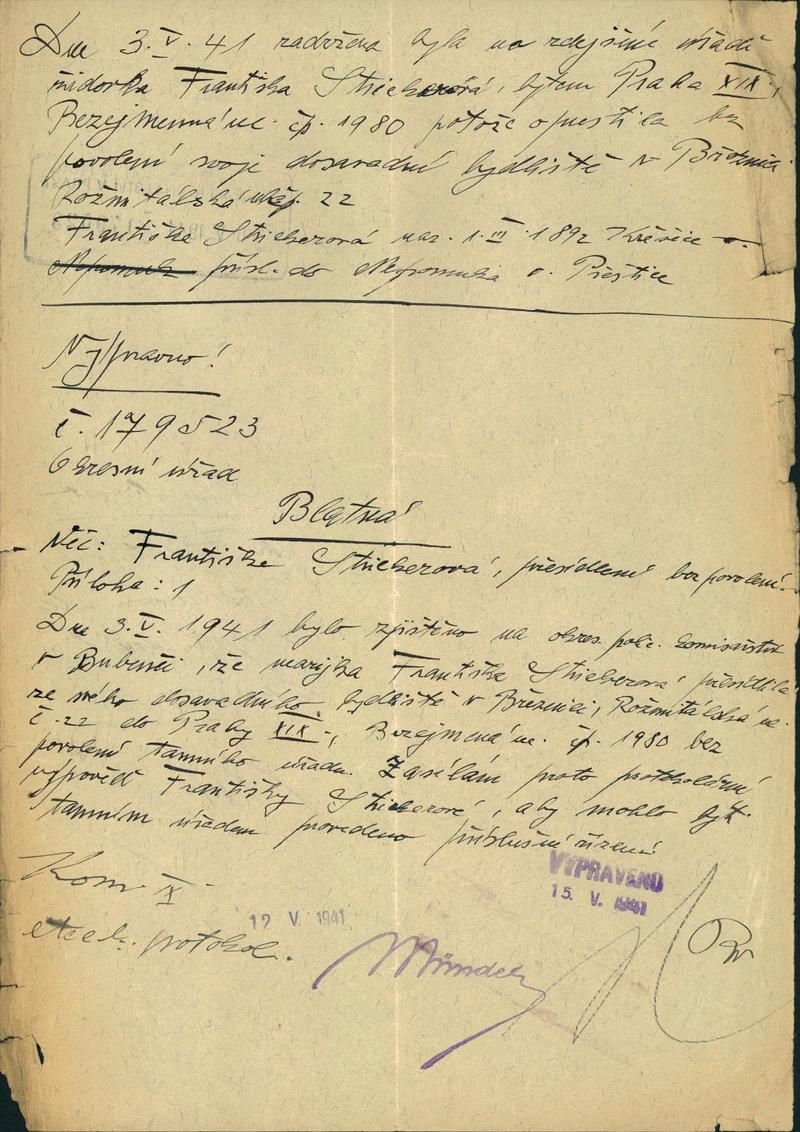 Dne 3.V.41 zadržena byla na zdejším úřadě
židovka Františka Strickerová, bytem Praha XIX,
Bezejmenná ul. čp. 1980 potože opustila bez
povolení svoje dosavadní bydliště v Březnici
Rožmitálská ul. čp. 22
Františka Strickerová nar. 1.III.1892
Nepomuk přísl. do Nepomuka o. Přeštice
Vypravno!
č. 179523
Okresní úřad
Blatná
Věc: Františka Strickerová, přesídlení bez povolení.
Příloha: 1
Dne 3.V. 1941 bylo zjištěno na okres. polic. komisařství
v Bubenči, že Františka Strickerová přesídlila
ze svého dosavadního bydliště v Březnici, Rožmitálská ul.
č. 22 do Prahy XIX, Bezejmená ul. čp. 1980 bez
povolení tamního úřadu. Zasílám proto protokolární
výpověď Františky Strickerové, aby mohlo být
tamním úřadem provedeno příslušné řízení.
Kom. IX
12 V. 1941
VYPRAVENO
15. V. 1941
protokol.